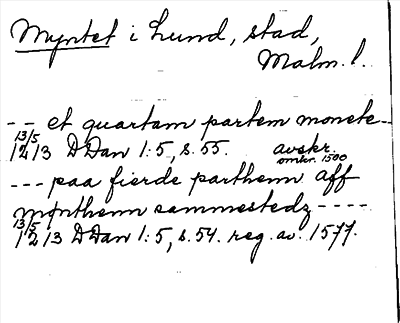 Myntet i Lund, stad,
Malm. l.
-- et quartam partem monete--
13/5 1213 DDan 1:5, s. 55. avskr. omkr. 1500
--- paa fierde parthenn aff
mønthenn sammestedz ----
13/5 1213 DDan 1:5, s. 54. reg. av. 1577.